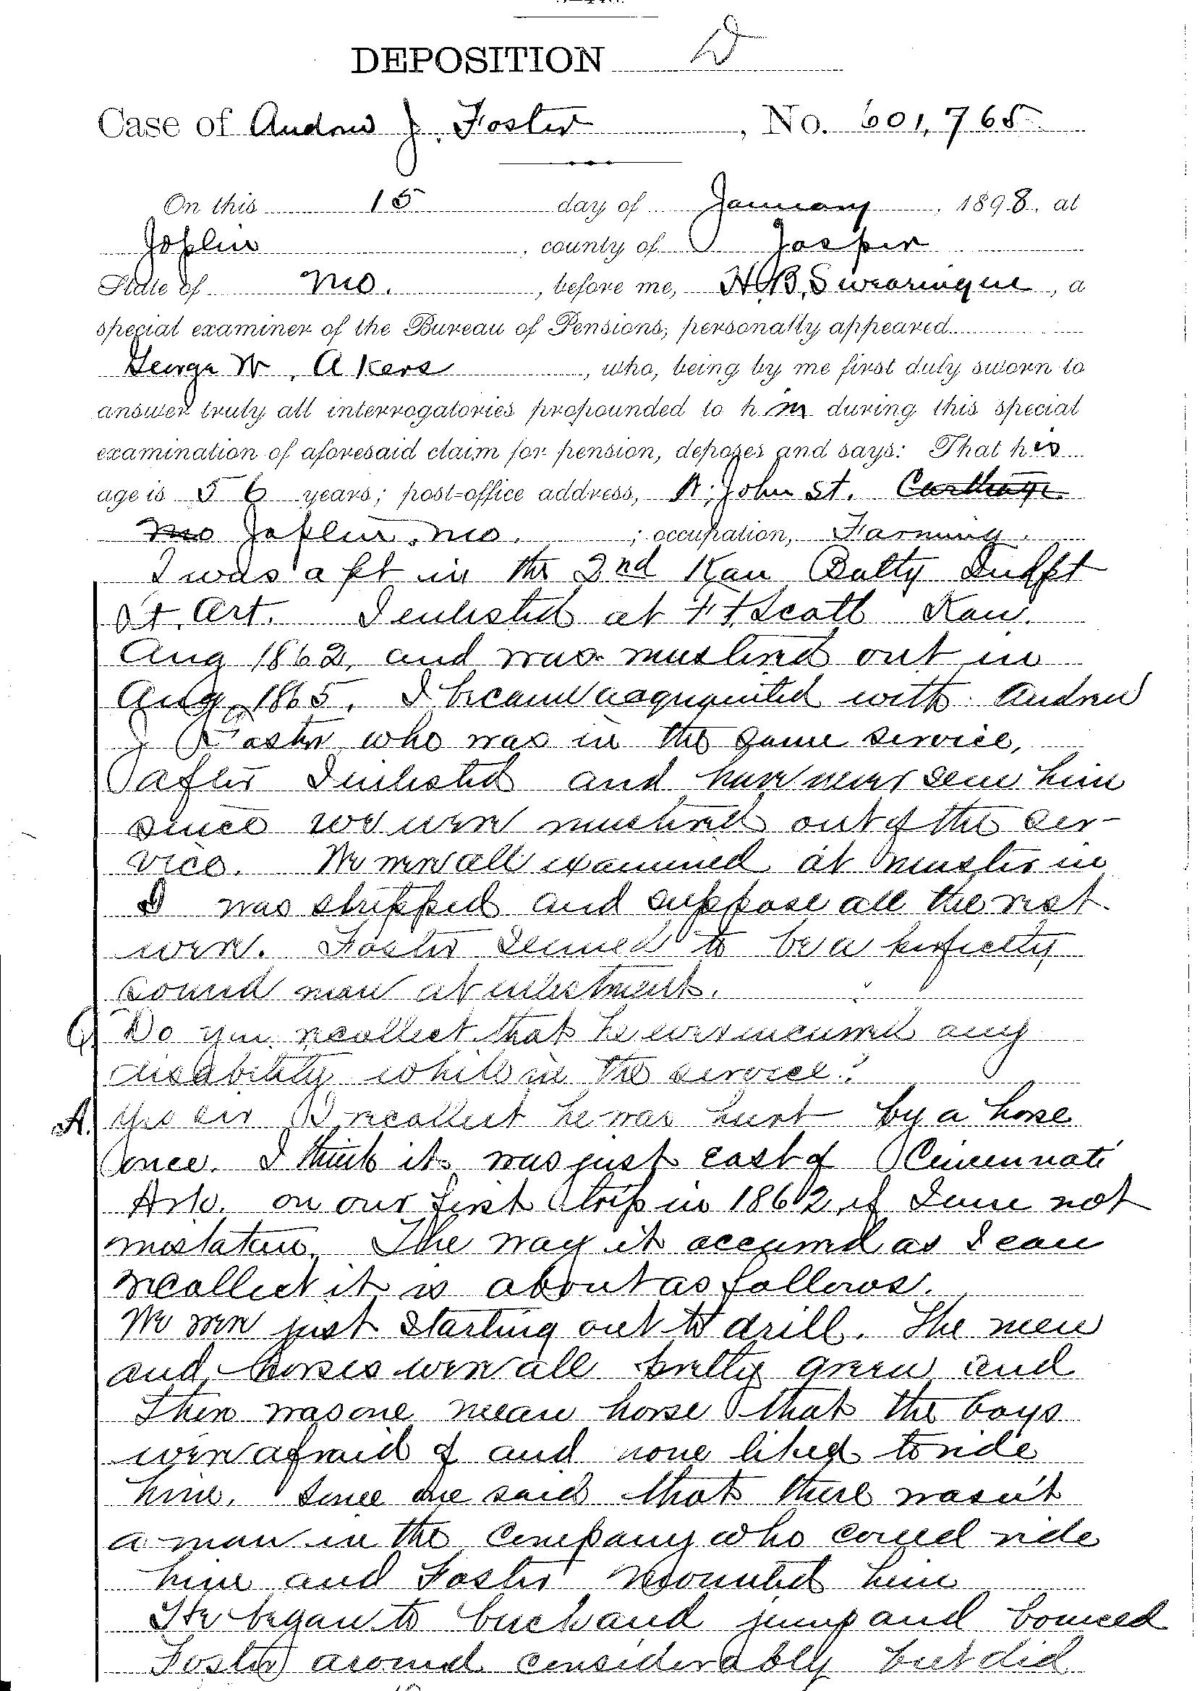 DEPOSITION D
Case of Andrew J. Foster, No. 601,765
On this 15 day of January, 1898, at
Joplin, county of Jasper
State of Mo., before me, H. B. Swearingen, a
special examiner of the Bureau of Pensions, personally appeared
George W. Akers, who, being by me first duly sworn to
answer truly all interrogatories propounded to him during this special
examination of aforesaid claim for pension, deposes and says: That his
age is 56 years; post-office address, N. John St. Carthage
Mo Joplin, Mo.; occupation, Farming.
I was a pt in the 2nd Kan Batty Indpt
Lt. Art. I enlisted at Ft. Scott Kan.
Aug 1862, and was mustered out in
Aug, 1865. I became acquainted with Andrew
J Foster who was in the same service,
after I enlisted and have never seen him
since we were mustered out of the ser-
vice. We were all examined at muster in
I was stripped and suppose all the rest
were. Foster seemed to be a perfectly
sound man at enlistment.
Q. Do you recollect that he ever incurred any
disability while in the service?
A. Yes sir I recollect he was hurt by a horse
once. I think it was just east of Cincinnati
Ark. on our first trip in 1862, if I am not
mistaken. The way it occurred as I can
recollect it is about as follows.
We were just starting out to drill. The men
and horses were all pretty green and
there was one mean horse that the boys
were afraid of and none liked to ride
him. Some one said that there wasn't
a man in the company who could ride
him and Foster mounted him
He began to buck and jump and bounced
Foster around considerably but did